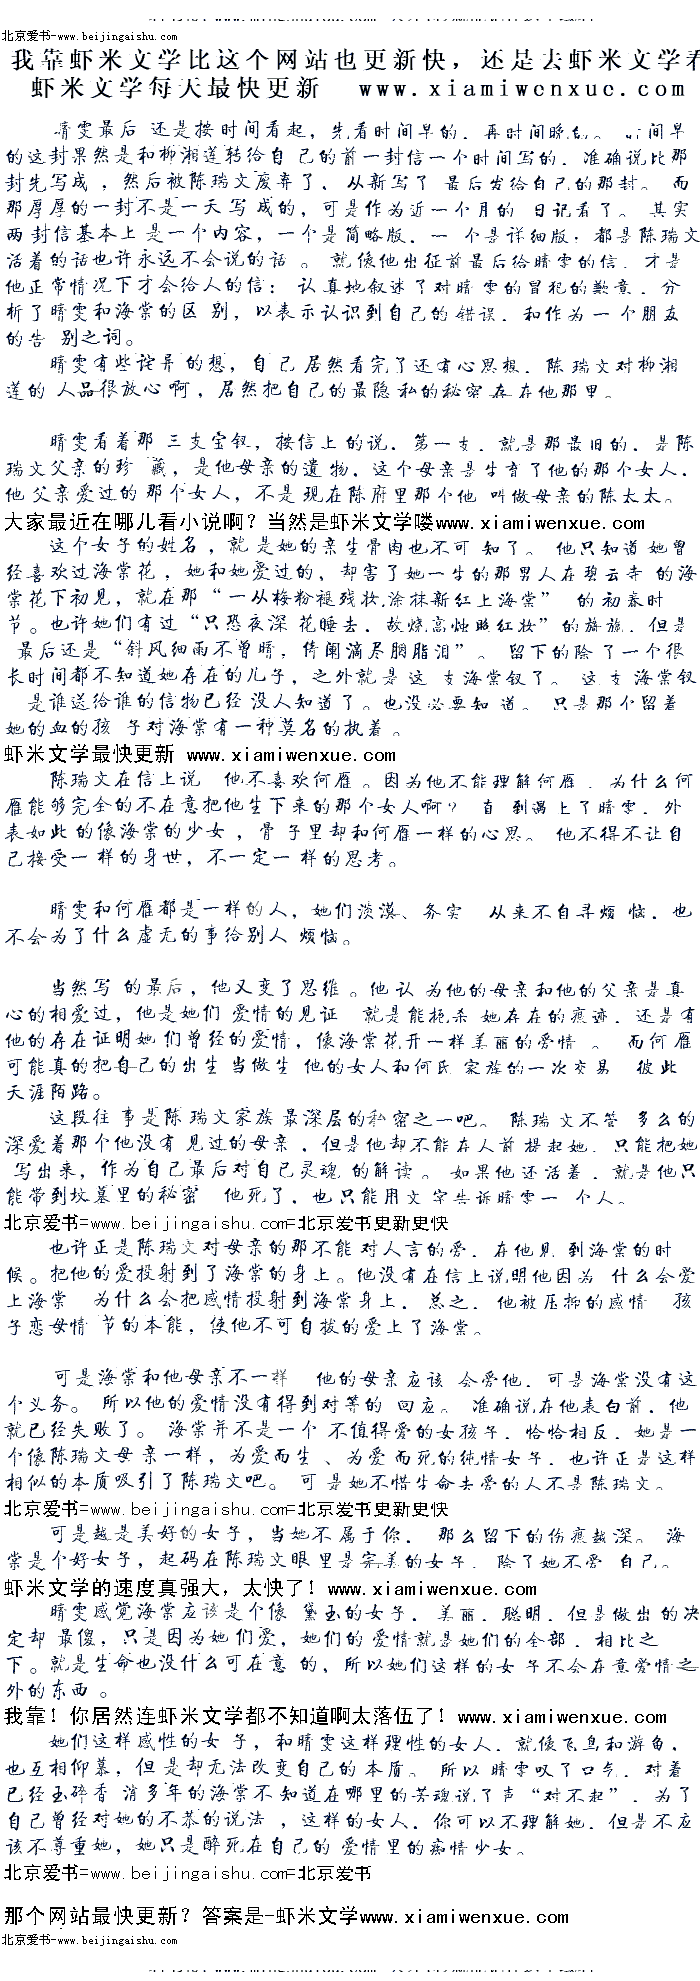 北京爱书-www.beijingaishu.com
我靠虾米文学比这个网站也更新快，还是去虾米文学看
虾米文学每天最快更新 www.xiamiwenxue.com
晴雯最后 还是按时间看起，先看时间早的．再看时间晚的。 时间早
的这封果然是和柳湘莲转给自 己的前一封信一个时间写的．准确说比那
封先写成 ，然后被陈瑞文废弃了．从新写了 最后发给自己的那封。 而
那厚厚的一封不是一天写 成的，可是作为近一个月的 日记看了。 其实
两封信基本上是一个内容，一个是简略版．一 个是详细版：都是陈瑞文
活着的话也许永远不会说的话 。 就像他出征前最后给晴雯的信．才是
他正常情况下才会给人的信： 认真地叙述了对晴 雯的冒犯的歉意．分
析了晴雯和海棠的区 别，以表示认识到自己的错误．和作为一个朋友
的告 别之词。
晴雯有些诧异的想，自 己居然看完了还有心思想．陈 瑞文对柳湘
莲的 人品很放心啊，居然把自己的最隐私的秘密存在他那里。
晴雯看着那 三支宝钗，按信上的说．第一支．就是那最旧的．是陈
瑞文父亲的珍 藏，是他母亲的遗 物．这个母亲是生育了他的那个女人．
他 父亲爱过的那个女人，不是现在陈府里那个他 叫做母亲的陈太太。
大家最近在哪儿看小说啊？当然是虾米文学喽www.xiamiwenxue.com
这个女子的姓名 ，就 是她的亲生骨肉也不可 知了。 他只知道她曾
经喜欢过海棠花 ，她和她爱过的．却害了她一生的那男人在碧云寺 的海
棠花下初见，就在那“一丛梅粉褪残妆.涂抹新红上海棠” 的初春时
节。也许她们有过“只恐夜深 花睡去．故烧高烛照红妆”的旖旎．但是
最后还是“斜风细雨不曾晴，倚阑滴尽胭脂泪”。 留下的除了一个很
长时间都不知道她存在的儿子，之外就是 这 支海棠钗了。 这 支 海棠钗
是谁送给谁的信物已经 没人知道了。也没必要知 道。 只是那个留着
她的血的孩 子对海棠有一种莫名的执着 。
虾米文学最快更新 www.xiamiwenxue.com
陈瑞文在信上说 他不喜欢何雁 。因为他不能理解何雁 ．为什么何
雁能够完全的不在意把他生下来的那个女人啊？ 直 到遇上了晴雯．外
表如此的像海棠的少女 ，骨 子里却和何雁一样的心思。 他不得不让自
己接受一 样的身世，不一定一样的思考。
晴雯和何雁都是一样的人，她们淡漠、务实 从来不自寻烦 恼．也
不会为了什么虚无的事给别人 烦恼。
当然写 的最后，他又变了思维 。他 认 为他的母亲和他的父亲是真
心的相爱过，他是她们 爱情的见证 就是能抹杀 她存在的痕迹．还是有
他的存在证明她们曾经的爱情，像海棠花开一样美丽的爱情 。 而何雁
可能真的把自己的出生当做生 他的女人和何氏 家族的一次交易 彼此
天涯陌路。
这段往 事是陈瑞文家族 最深层的私密之一吧。 陈瑞 文不管 多么的
深爱着那个他没有见过的母亲 ．但是他却不能在人前提起她．只能把她
写出来，作为自己最后对自己灵魂 的解读 。如果他还活着．就是他只
能带到坟墓里的秘密 他死了．也只能用文字告诉晴雯一 个人。
北京爱书=www.beijingaishu.com=北京爱书更新更快
也许正是陈瑞文对母亲的那不能 对人言的爱．在他见 到海棠的时
候。把他的爱投射到了海棠的身上。他没有在信上说明他因为 什么会爱
上海棠 为什么会把感情投射到海棠身上．总之．他被压抑的感情 孩
子恋母情 节的本能，使他不可自拔的爱上了海棠。
可是海棠和他母亲不一样 他的母亲应该 会爱他．可是海棠没有这
个义务。 所以他的爱情没有得到对等的 回应。 准确说在他表白前．他
就已经失败了。 海棠并不是一个 不值得爱的女孩子．恰恰相反．她是一
个像陈瑞文母 亲一样，为爱而生 、为爱 而死的纯情女子．也许正是这样
相似的本质吸引了陈瑞文吧。 可 是她不惜生命去爱的人不是陈瑞文。
北京爱书=www.beijingaishu.com=北京爱书更新更快
可是越是美好的女子，当她不 属于你． 那么留下的伤痕越深。 海
棠是个好女子，起码在陈瑞文眼 里是完美的女子．除了她不爱 自己。
虾米文学的速度真强大，太快了！www.xiamiwenxue.com
晴雯感觉海棠应该是个像 黛玉的女子． 美丽．聪明．但是做出的决
定却 最傻，只是因为她们爱，她们的爱情就是她们的全部．相比之
下。就是生命也没什么可在意 的，所以她们这样的女 子不会在意爱情之
外的东西 。
我靠！你居然连虾米文学都不知道啊太落伍了！www.xiamiwenxue.com
她们这样感性的女 子，和晴雯这样理性的女人．就像飞鸟和游鱼．
也互相仰慕，但是却无法改变自己的本质。 所以 晴雯叹了口气．对着
已经玉碎香 消多年的海棠不知道在哪里的芳魂说了声“对不起”．为了
自己曾经对她的不恭的说法 ，这样的女人．你可以不理解她．但是不应
该不尊重她，她只是醉死在自己的 爱情里的痴情少女。
北京爱书=www.beijingaishu.com=北京爱书
那个网站最快更新？答案是-虾米文学www.xiamiwenxue.com
北京爱书-www.beijingaishu.com